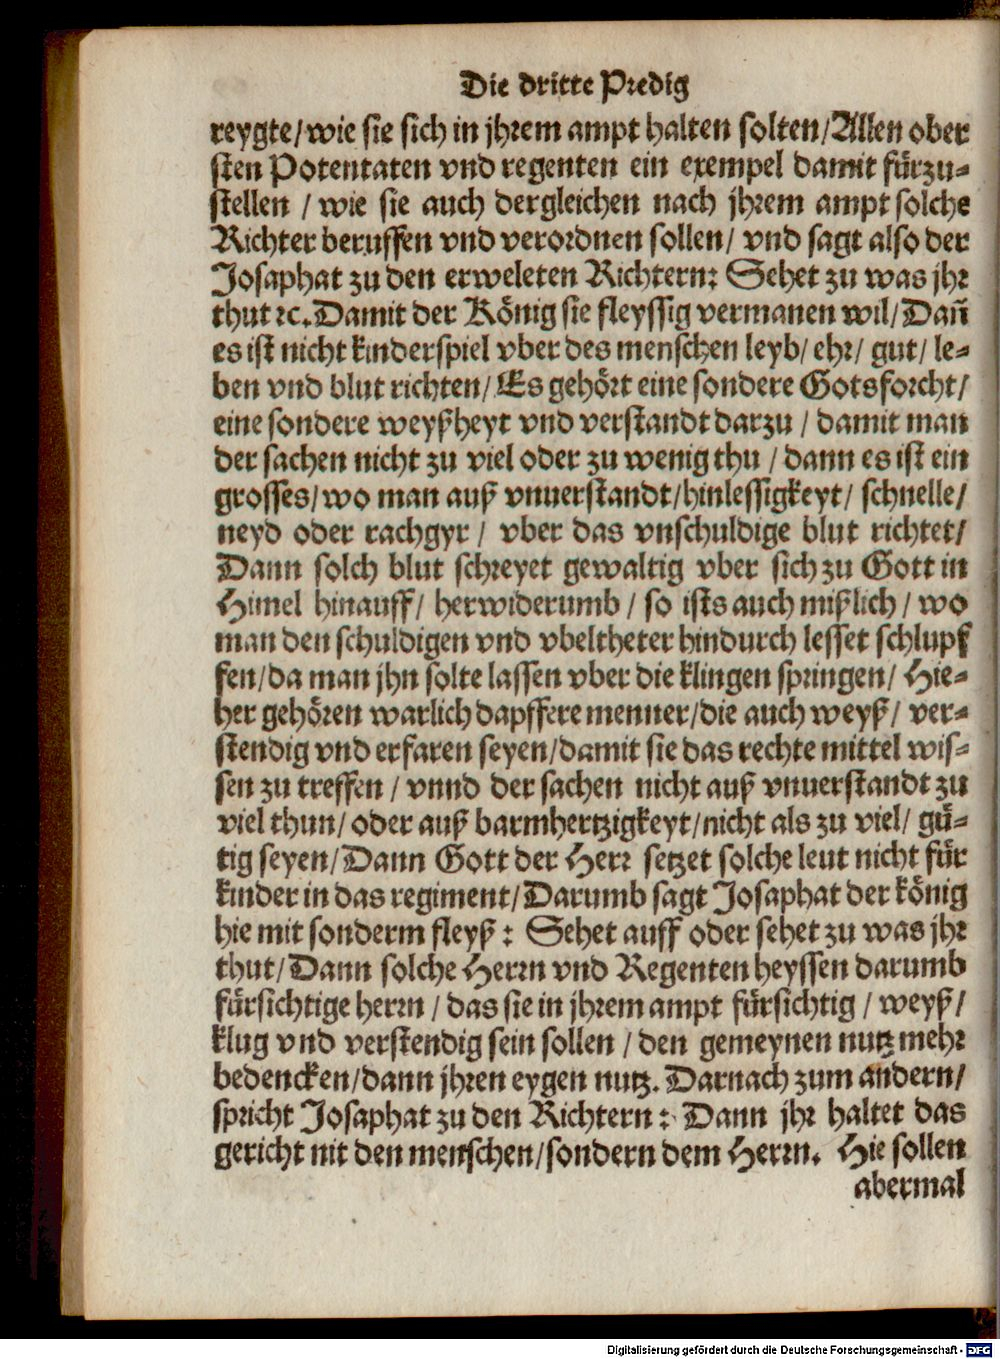 Die dritte Predig
reygte/wie sie sich in jhrem ampt halten solten/Allen ober
sten Potentaten vnd regenten ein exempel damit fürzu-
stellen / wie sie auch dergleichen nach jhrem ampt solche
Richter beruffen vnd verordnen sollen/ vnd sagt also der
Josaphat zu den erweleten Richtern: Sehet zu was jhr
thut ꝛc. Damit der König sie fleyssig vermanen wil/Dañ
es ist nicht kinderspiel vber des menschen leyb/ ehr/ gut/ le-
ben vnd blut richten/ Es gehört eine sondere Gotsforcht/
eine sondere weyßheyt vnd verstandt darzu / damit man
der sachen nicht zu viel oder zu wenig thu / dann es ist ein
grosses/wo man auß vnuerstandt/hinlessigkeyt/ schnelle/
neyd oder rachgyr / vber das vnschuldige blut richtet/
Dann solch blut schreyet gewaltig vber sich zu Gott in
Himel hinauff/ herwiderumb / so ists auch mißlich / wo
man den schuldigen vnd vbeltheter hindurch lesset schlupf
fen/da man jhn solte lassen vber die klingen springen/ Hie-
her gehören warlich dapffere menner/die auch weyß/ ver-
stendig vnd erfaren seyen/damit sie das rechte mittel wis-
sen zu treffen / vnnd der sachen nicht auß vnuerstandt zu
viel thun/ oder auß barmhertzigkeyt/nicht als zu viel/ gü-
tig seyen/Dann Gott der Herr setzet solche leut nicht für
kinder in das regiment/Darumb sagt Josaphat der könig
hie mit sonderm fleyß : Sehet auff oder sehet zu was jhr
thut/Dann solche Herrn vnd Regenten heyssen darumb
fürsichtige herrn / das sie in jhrem ampt fürsichtig / weyß/
klug vnd verstendig sein sollen / den gemeynen nutz mehr
bedencken/dann jhren eygen nutz. Darnach zum andern/
spricht Josaphat zu den Richtern : Dann jhr haltet das
gericht nit den menschen/sondern dem Herrn. Hie sollen
abermal
Digitalisierung gefördert durch die Deutsche Forschungsgemeinschaft - DFG